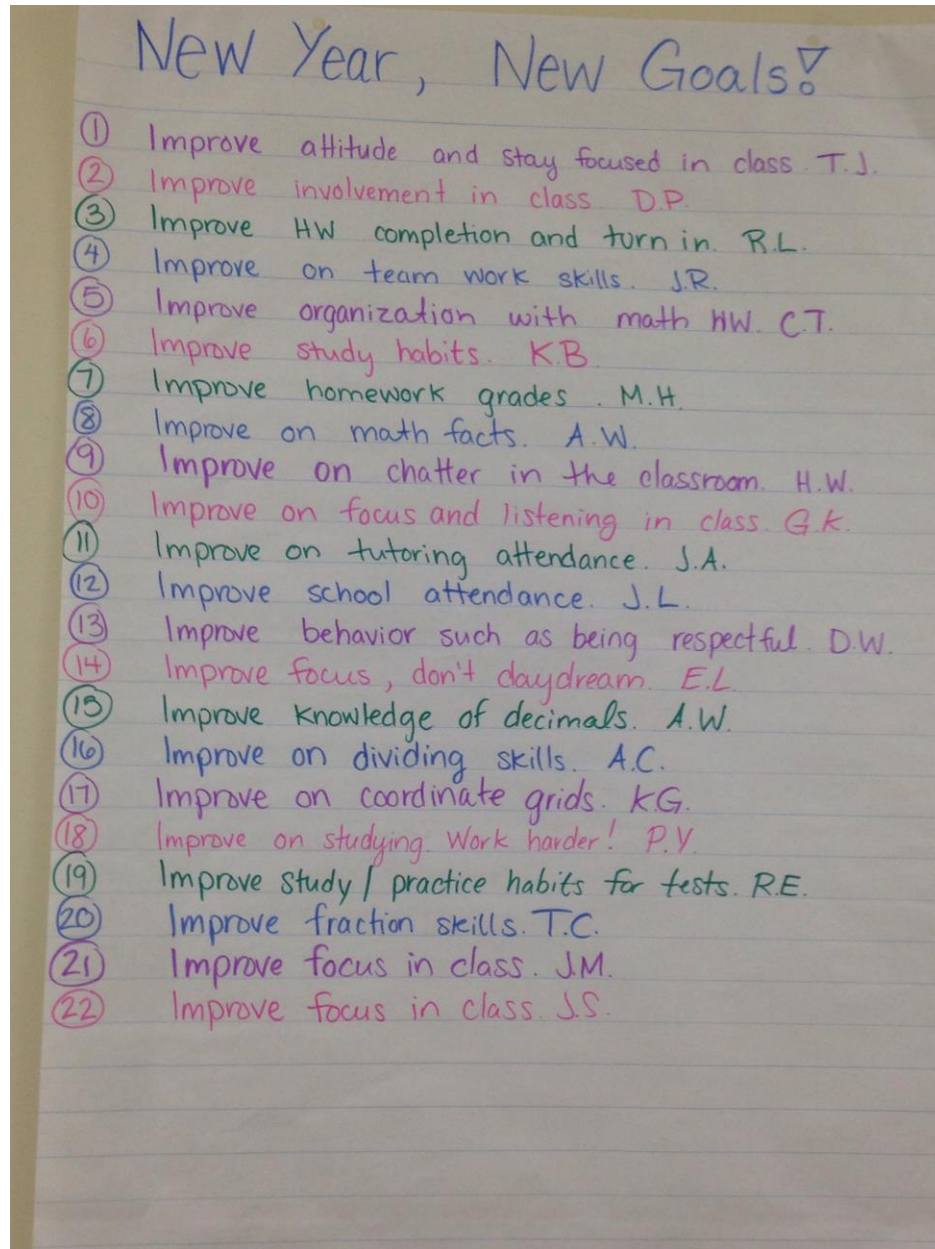 New Year, New Goals!
① Improve attitude and stay focused in class. T.J.
② Improve involvement in class. D.P.
③ Improve HW completion and turn in. R.L.
④ Improve on team work skills. J.R.
⑤ Improve organization with math HW. C.T.
⑥ Improve study habits. K.B.
⑦ Improve homework grades. M.H.
⑧ Improve on math facts. A.W.
⑨ Improve on chatter in the classroom. H.W.
⑩ Improve on focus and listening in class. G.K.
⑪ Improve on tutoring attendance. J.A.
⑫ Improve school attendance. J.L.
⑬ Improve behavior such as being respectful. D.W.
⑭ Improve focus, don't daydream. E.L.
⑮ Improve knowledge of decimals. A.W.
⑯ Improve on dividing skills. A.C.
⑰ Improve on coordinate grids. K.G.
⑱ Improve on studying. Work harder! P.Y.
⑲ Improve study / practice habits for tests. R.E.
⑳ Improve fraction skills. T.C.
㉑ Improve focus in class. J.M.
㉒ Improve focus in class. J.S.